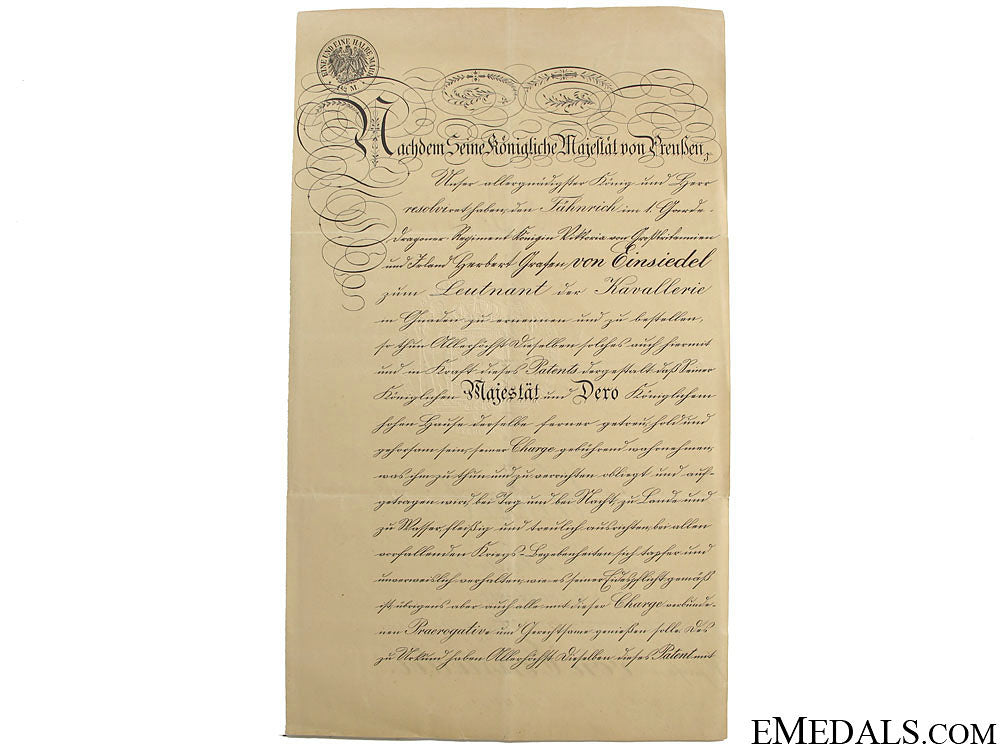 EINE UND EINE HALBE MARK
1½ M.
Nachdem Seine Königliche Majestät von Preußen,
Unser allergnädigster König und Herr
resolviret haben, den Fähnrich im 1. Garde-
Dragoner-Regiment Königin Viktoria von Großbritannien
und Irland Herbert Grafen von Einsiedel
zum Leutnant der Kavallerie
in Gnaden zu ernennen und zu bestellen,
so thun Allerhöchst Dieselben solches auch hiermit
und in Kraft dieses Patents dergestalt, daß Seiner
Königlichen Majestät und Dero Königlichem
hohen Hause derselbe ferner getreu, hold und
gehorsam sein, seiner Charge gebührend wahrnehmen,
was ihm zu thun und zu verrichten obliegt und auf-
getragen wird, bei Tag und bei Nacht, zu Lande und
zu Wasser, fleißig und treulich ausrichten, bei allen
vorfallenden Kriegs-Begebenheiten sich tapfer und
unverweislich verhalten, wie es seiner Eidespflicht gemäß
ist, übrigens aber auch alle mit dieser Charge verbunde-
nen Praerogative und Gerechtsame genießen solle. Des
zu Urkund haben Allerhöchst Dieselben dieses Patent mit
EMEDALS.COM